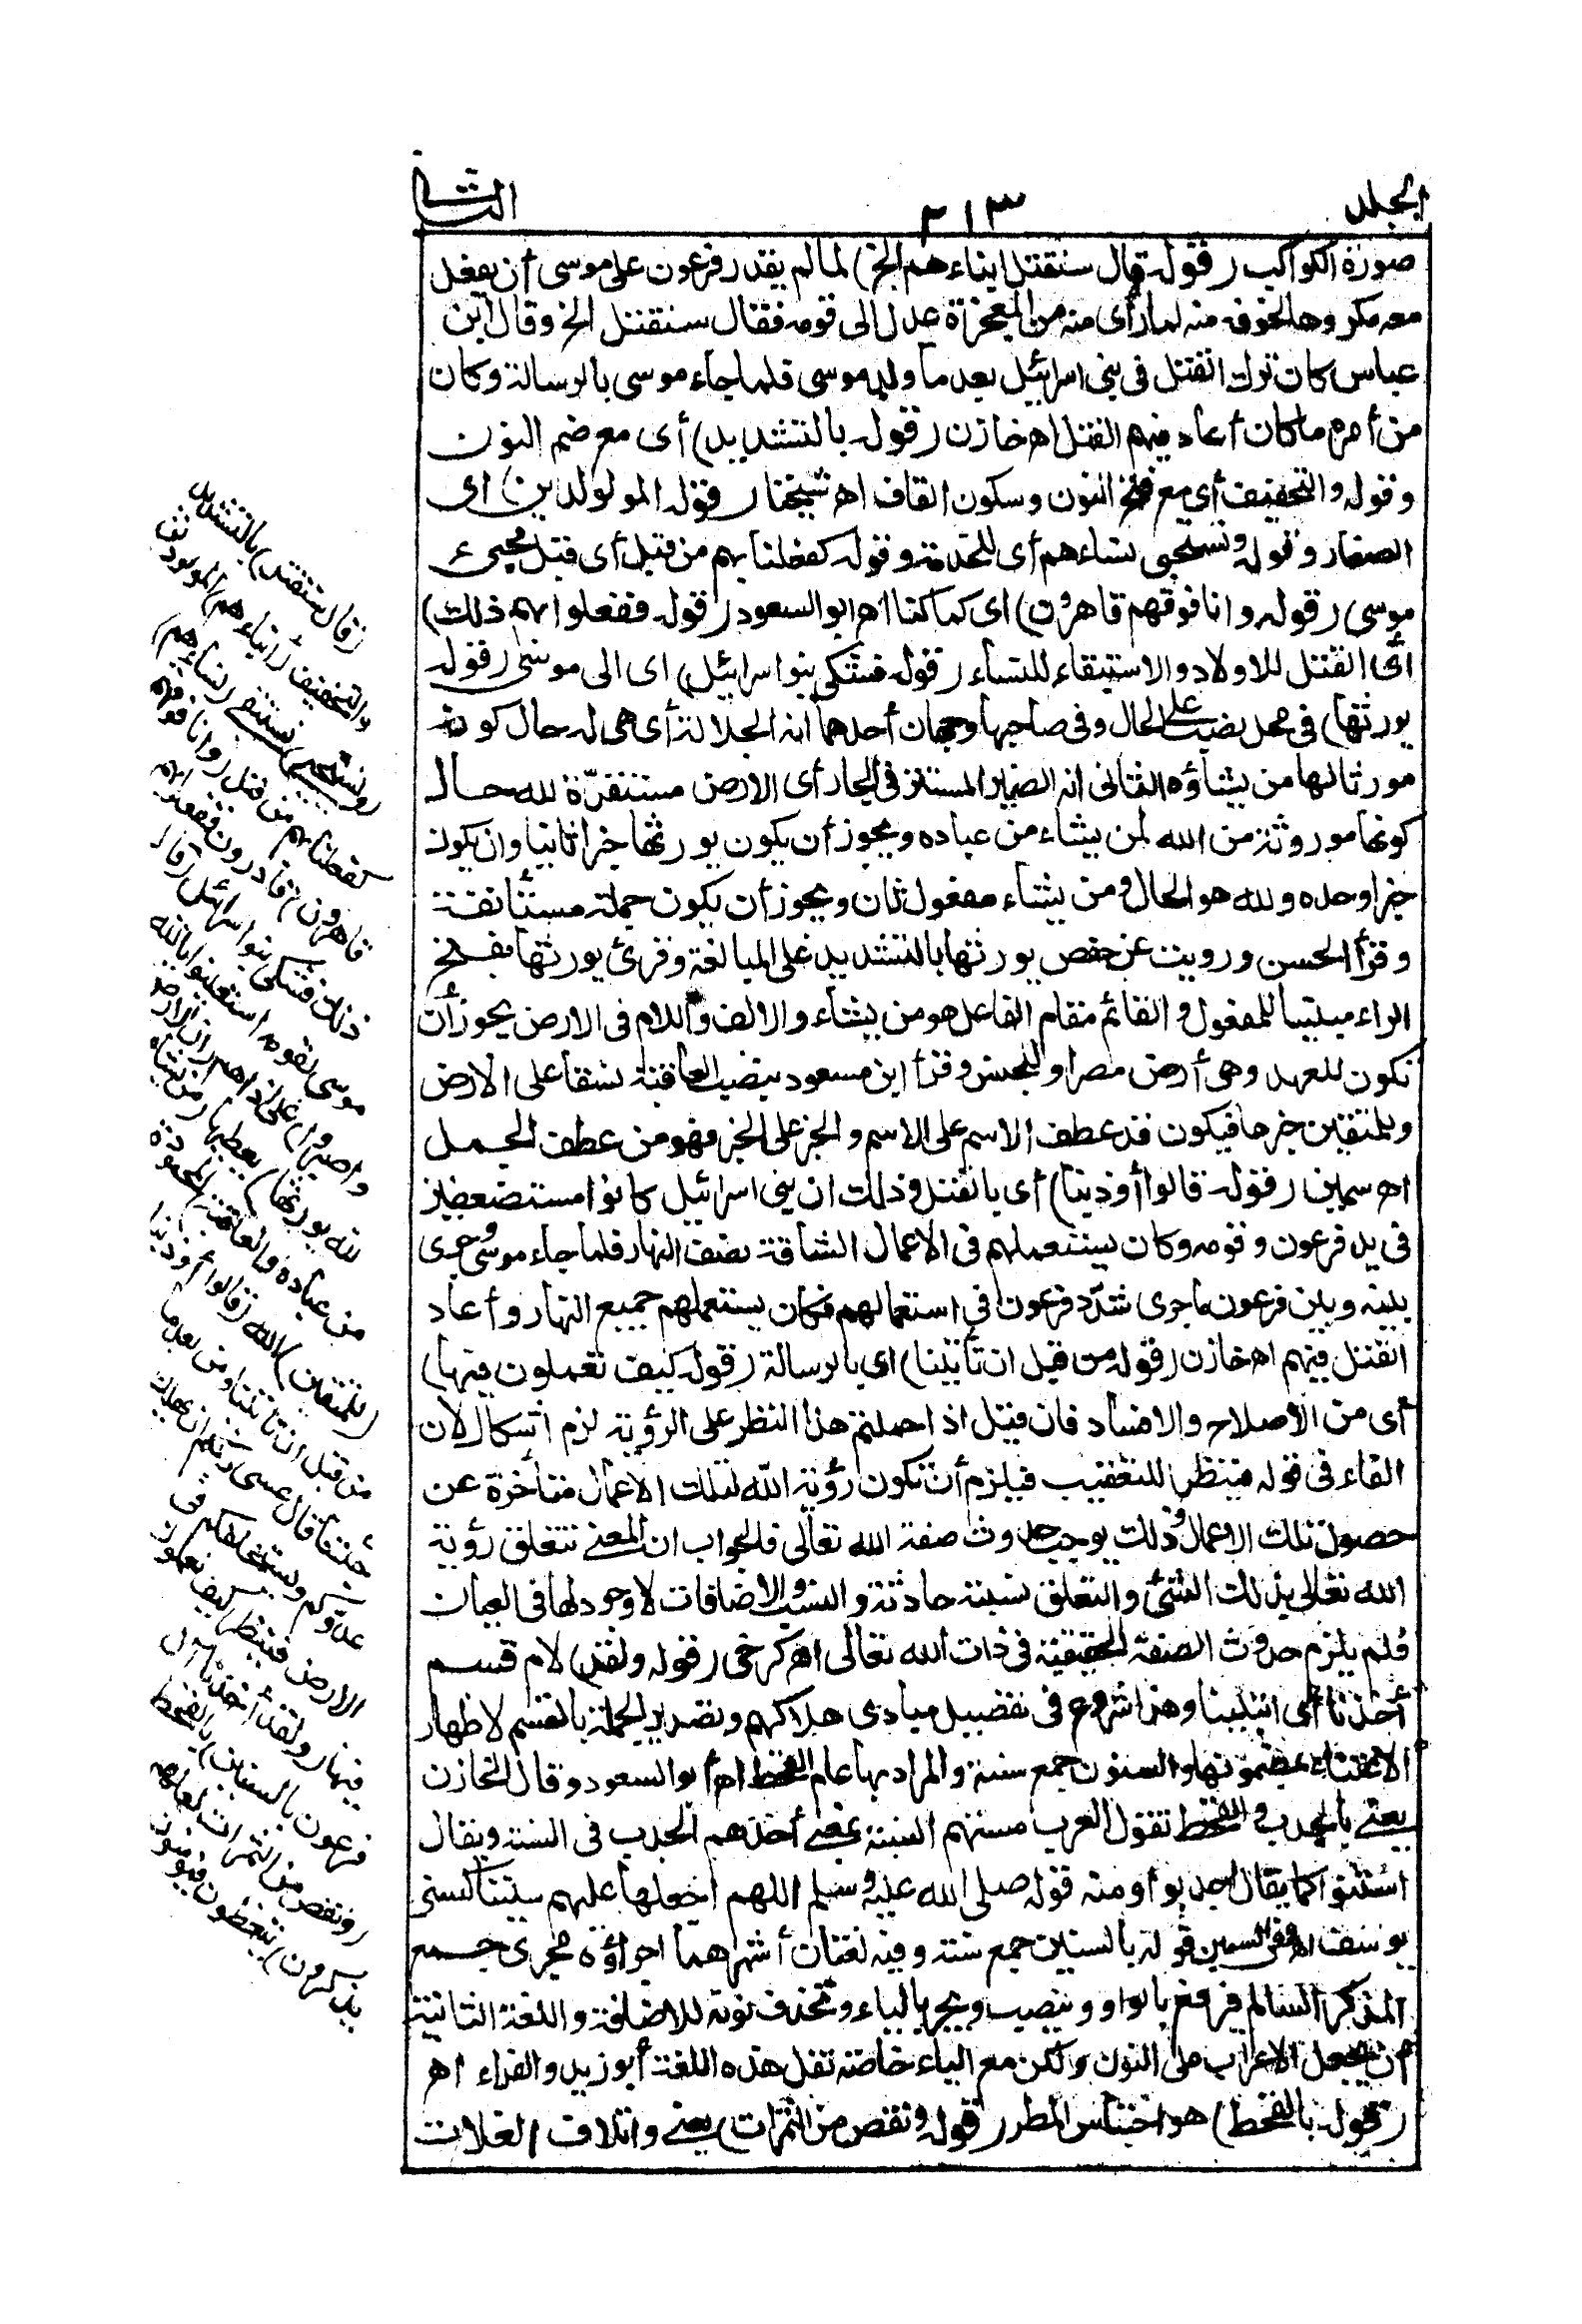 الجلد
٢١٣
الثانى
صورة الكواكب (قوله قال سنقتل ابناءهم الخ) لما لم يقدر فرعون على موسى أن يفعل
معه مكروها لخوفه منه لما رأى منه من المعجزة عدل الى قومه فقال سنقتل الخ وقال ابن
عباس كان ترك القتل فى بنى اسرائيل بعد ما ولد موسى فلما جاء موسى بالرسالة وكان
من أمره ما كان أعاد فيهم القتل اه خازن (قوله بالتشديد) أى مع ضم النون
وقوله والتخفيف أى مع فتح النون وسكون القاف اه شيخنا (قوله المولودين) اى
الصغار وقوله ونستحيى نساءهم أى للخدمة وقوله كفعلنا بهم من قبل أى قبل مجيىء
موسى (قوله وانا فوقهم قاهرون) اى كما كنا اه ابو السعود (قوله ففعلوا بهم ذلك)
أى القتل للاولاد والاستبقاء للنساء (قوله فشكى بنو اسرائيل) اى الى موسى (قوله
يورثها) فى محل نصب على الحال وفى صاحبها وجهان أحدهما انه الجلالة أى هى له حال كونه
مورثا لها من يشاؤه الثانى انه الضمير المستتر فى الجار أى الارض مستقرّة لله حال
كونها موروثة من الله لمن يشاء من عباده ويجوز أن يكون يورثها خبرا ثانيا وان يكون
خبرا وحده ولله هو الحال ومن يشاء مفعول ثان ويجوز أن يكون جملة مستأنفة
وقرأ الحسن ورويت عن حفص يورثها بالتشديد على المبالغة وقرئ يورثها بفتح
الراء مبنيا للمفعول والقائم مقام الفاعل هو من يشاء والالف واللام فى الارض يجوز أن
تكون للعهد وهى أرض مصر او للجنس وقرأ ابن مسعود بنصب العاقبة نسقا على الارض
وللمتقين خبرها فيكون قد عطف الاسم على الاسم والخبر على الخبر فهو من عطف الجمل
اه سمين (قوله قالوا أوذينا) أى بالقتل وذلك ان بنى اسرائيل كانوا مستضعفين
فى يد فرعون وقومه وكان يستعملهم فى الاعمال الشاقة نصف النهار فلما جاء موسى وجرى
بينه وبين فرعون ما جرى شدّد فرعون فى استعمالهم فكان يستعملهم جميع النهار وأعاد
القتل فيهم اه خازن (قوله من قبل ان تأتينا) اى بالرسالة (قوله كيف تعملون فيها)
أى من الاصلاح والافساد فان قيل اذا حملتم هذا النظر على الرؤية لزم اشكال لان
الفاء فى قوله فينظر للتعقيب فيلزم أن تكون رؤية الله لتلك الاعمال متأخرة عن
حصول تلك الاعمال وذلك يوجب حدوث صفة الله تعالى فالجواب ان المعنى تتعلق رؤية
الله تعالى بذلك الشئ والتعلق نسبة حادثة والنسب والاضافات لا وجود لها فى العيان
فلم يلزم حدوث الصفة الحقيقية فى ذات الله تعالى اه كرخى (قوله ولقد) لام قسم
أخذنا أى ابتلينا وهذا شروع فى تفصيل مبادى هلاكهم وتصدير الجملة بالقسم لاظهار
الاعتناء بمضمونها والسنون جمع سنة والمراد بها عام القحط اه أبو السعود وقال الخازن
يعنى بالجدب والقحط تقول العرب مستهم السنة بمعنى أخذهم الجدب فى السنة ويقال
اسنتوا كما يقال اجدبوا ومنه قوله صلى الله عليه وسلم اللهم اجعلها عليهم سنينا كسنى
يوسف اه وفى السمين قوله بالسنين جمع سنة وفيه لغتان أشهرهما اجراؤه مجرى جمع
المذكر السالم فيرفع بالواو وينصب ويجر بالياء وتحذف نونه للاضافة واللغة الثانية
أن يجعل الاعراب على النون ولكن مع الياء خاصة نقل هذه اللغة أبو زيد والفراء اه
(قوله بالقحط) هو احتباس المطر (قوله ونقص من الثمرات) يعنى واتلاف الغلات
(قال سنقتل) بالتشديد
والتخفيف (أبناءهم) المولودين
(ونستحيى) نستبقى (نساءهم)
كفعلنا بهم من قبل (وانا فوقهم
قاهرون) قادرون ففعلوا بهم
ذلك فشكى بنو اسرائيل (قال
موسى لقومه استعينوا بالله
واصبروا) على أذاهم (ان الارض
لله يورثها) يعطيها (من يشاء
من عباده والعاقبة) المحمودة
(للمتقين) الله (قالوا أوذينا
من قبل ان تأتينا ومن بعد ما
جئتنا قال عسى ربكم ان يهلك
عدوكم ويستخلفكم فى
الارض فينظر كيف تعملون)
فيها (ولقد أخذنا آل
فرعون بالسنين) بالقحط
(ونقص من الثمرات لعلهم
يذكرون) يتعظون فيؤمنون